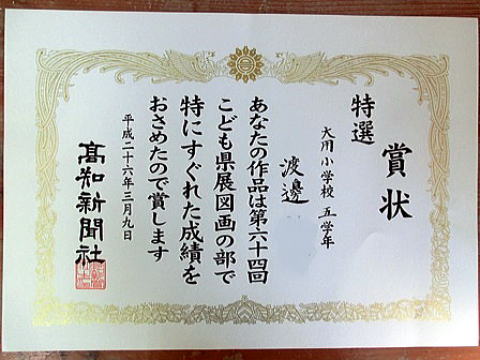 賞状
特選
大用小学校 五学年
渡邊
あなたの作品は第六十四回
こども県展図画の部で
特にすぐれた成績を
おさめたので賞します
平成二十六年三月九日
高知新聞社